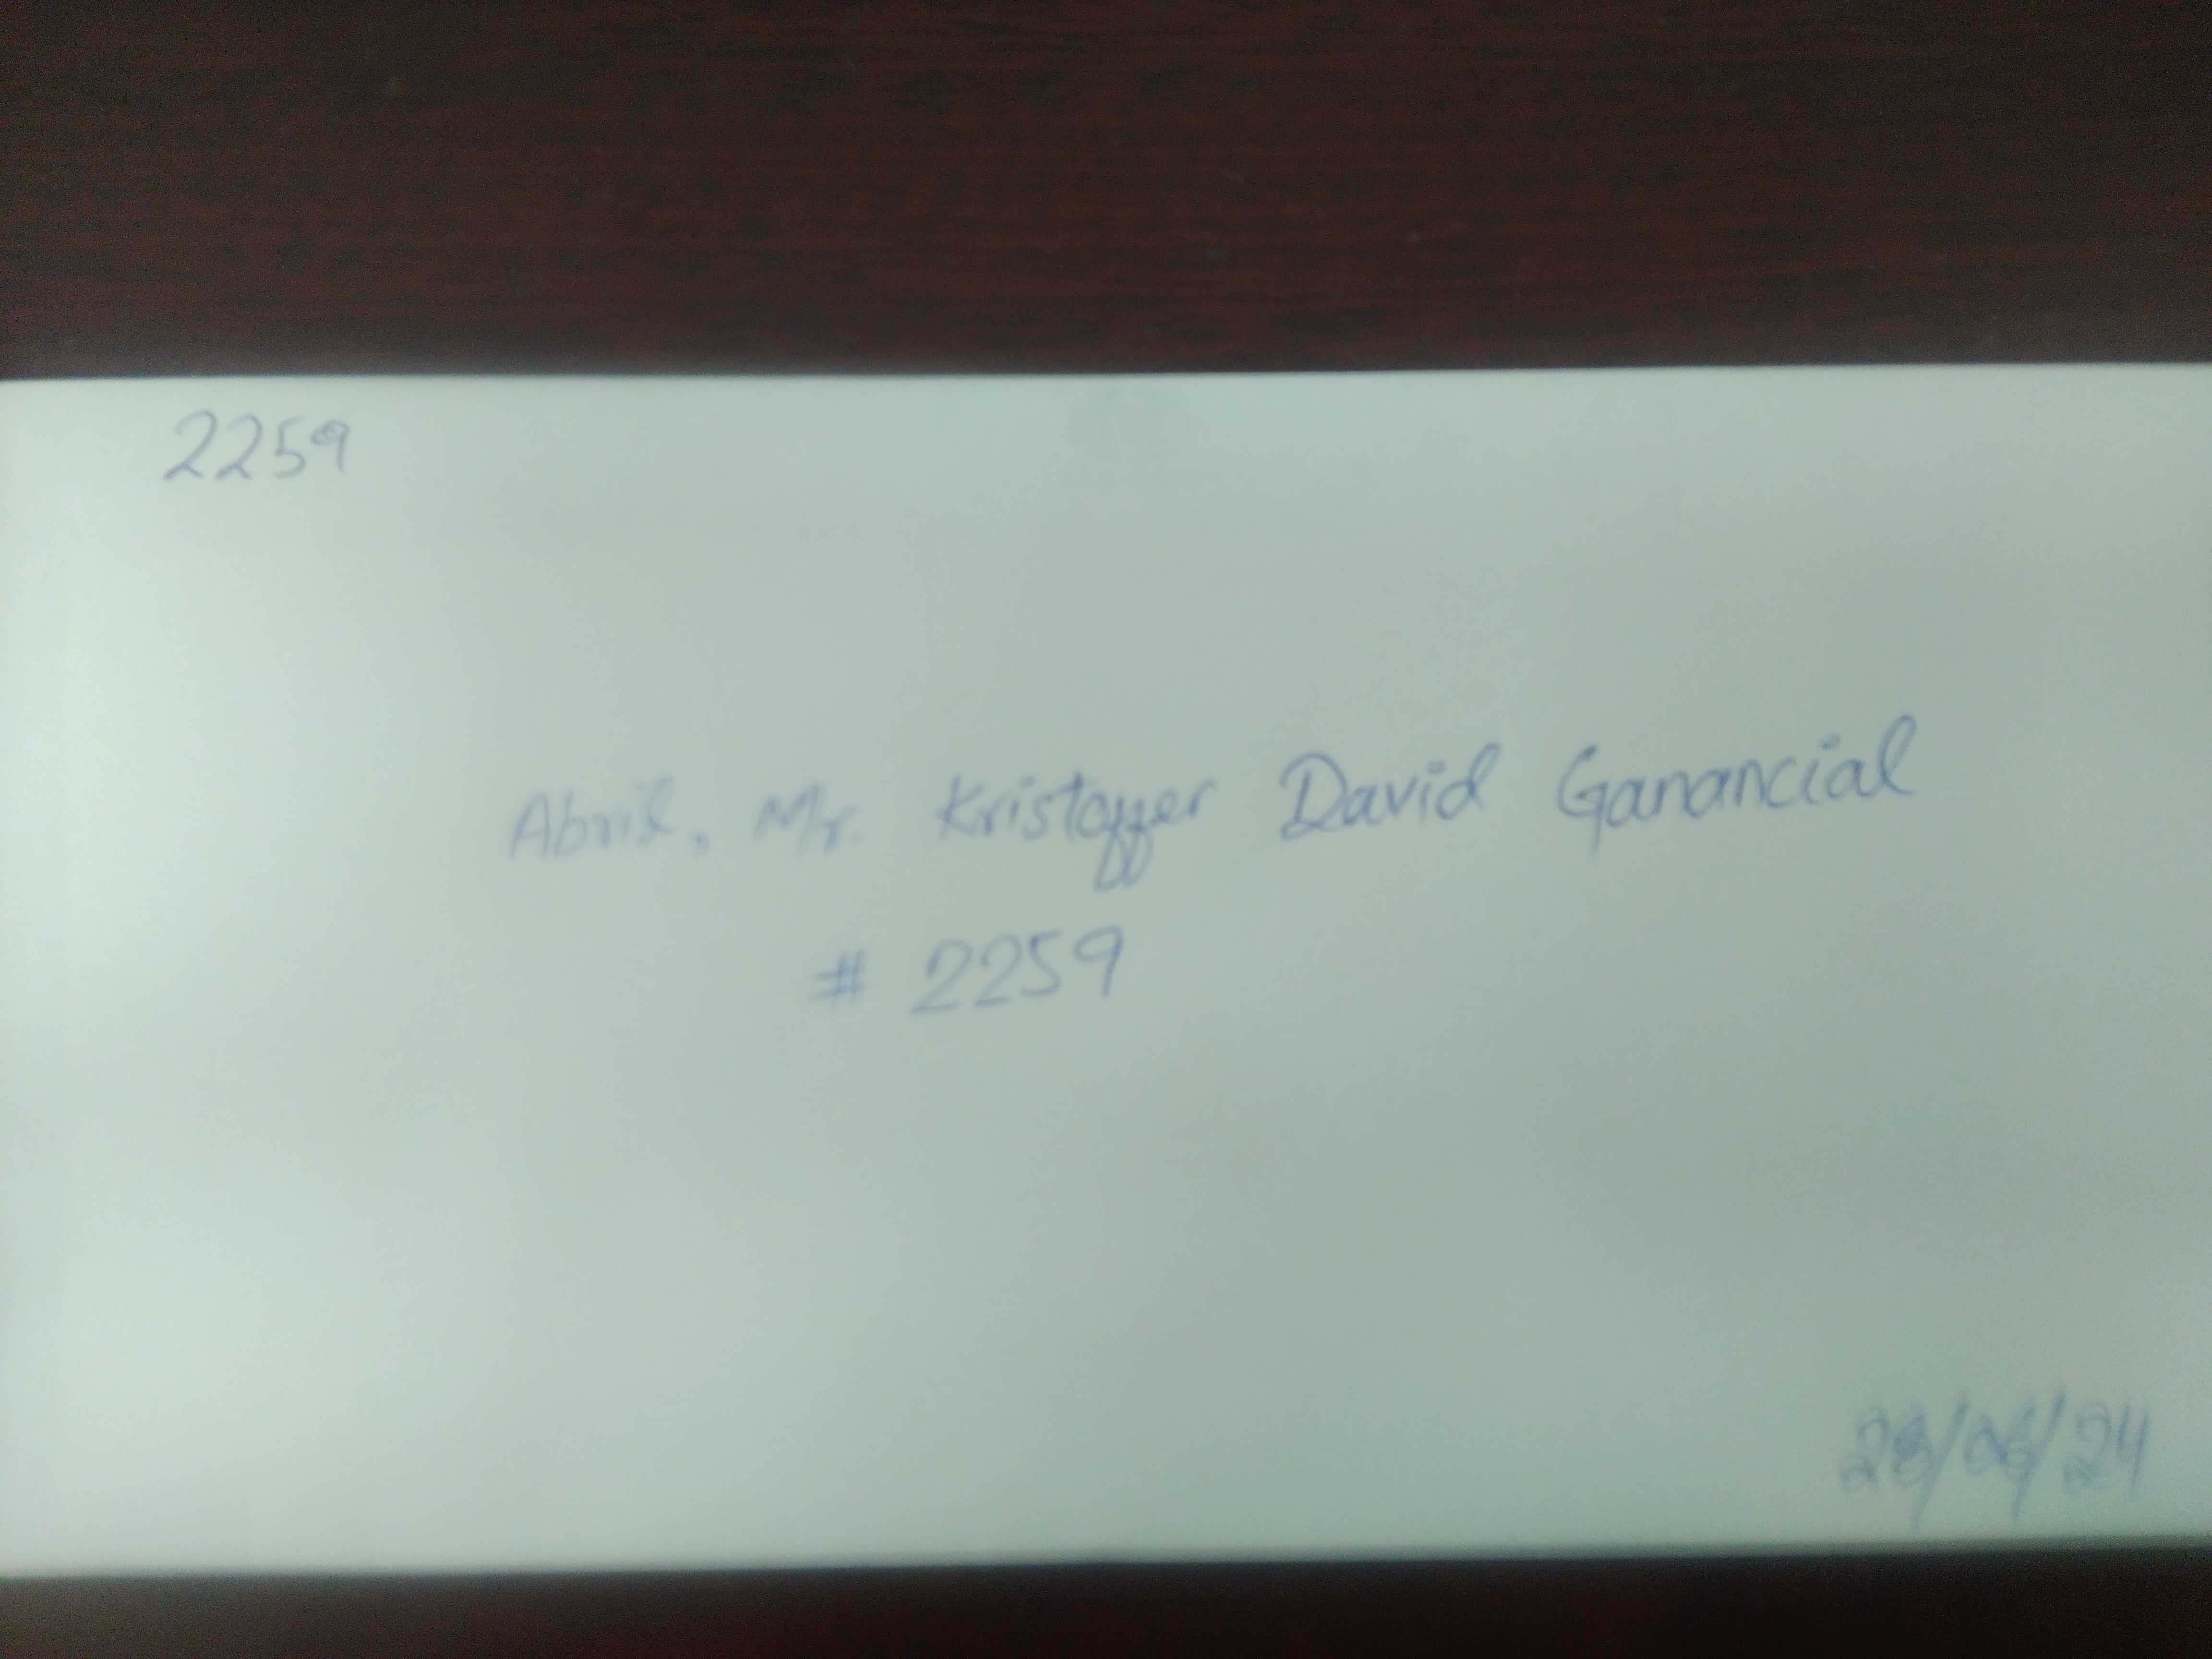 2259
Abril, Mr. Kristoffer David Ganancial
# 2259
28/06/24